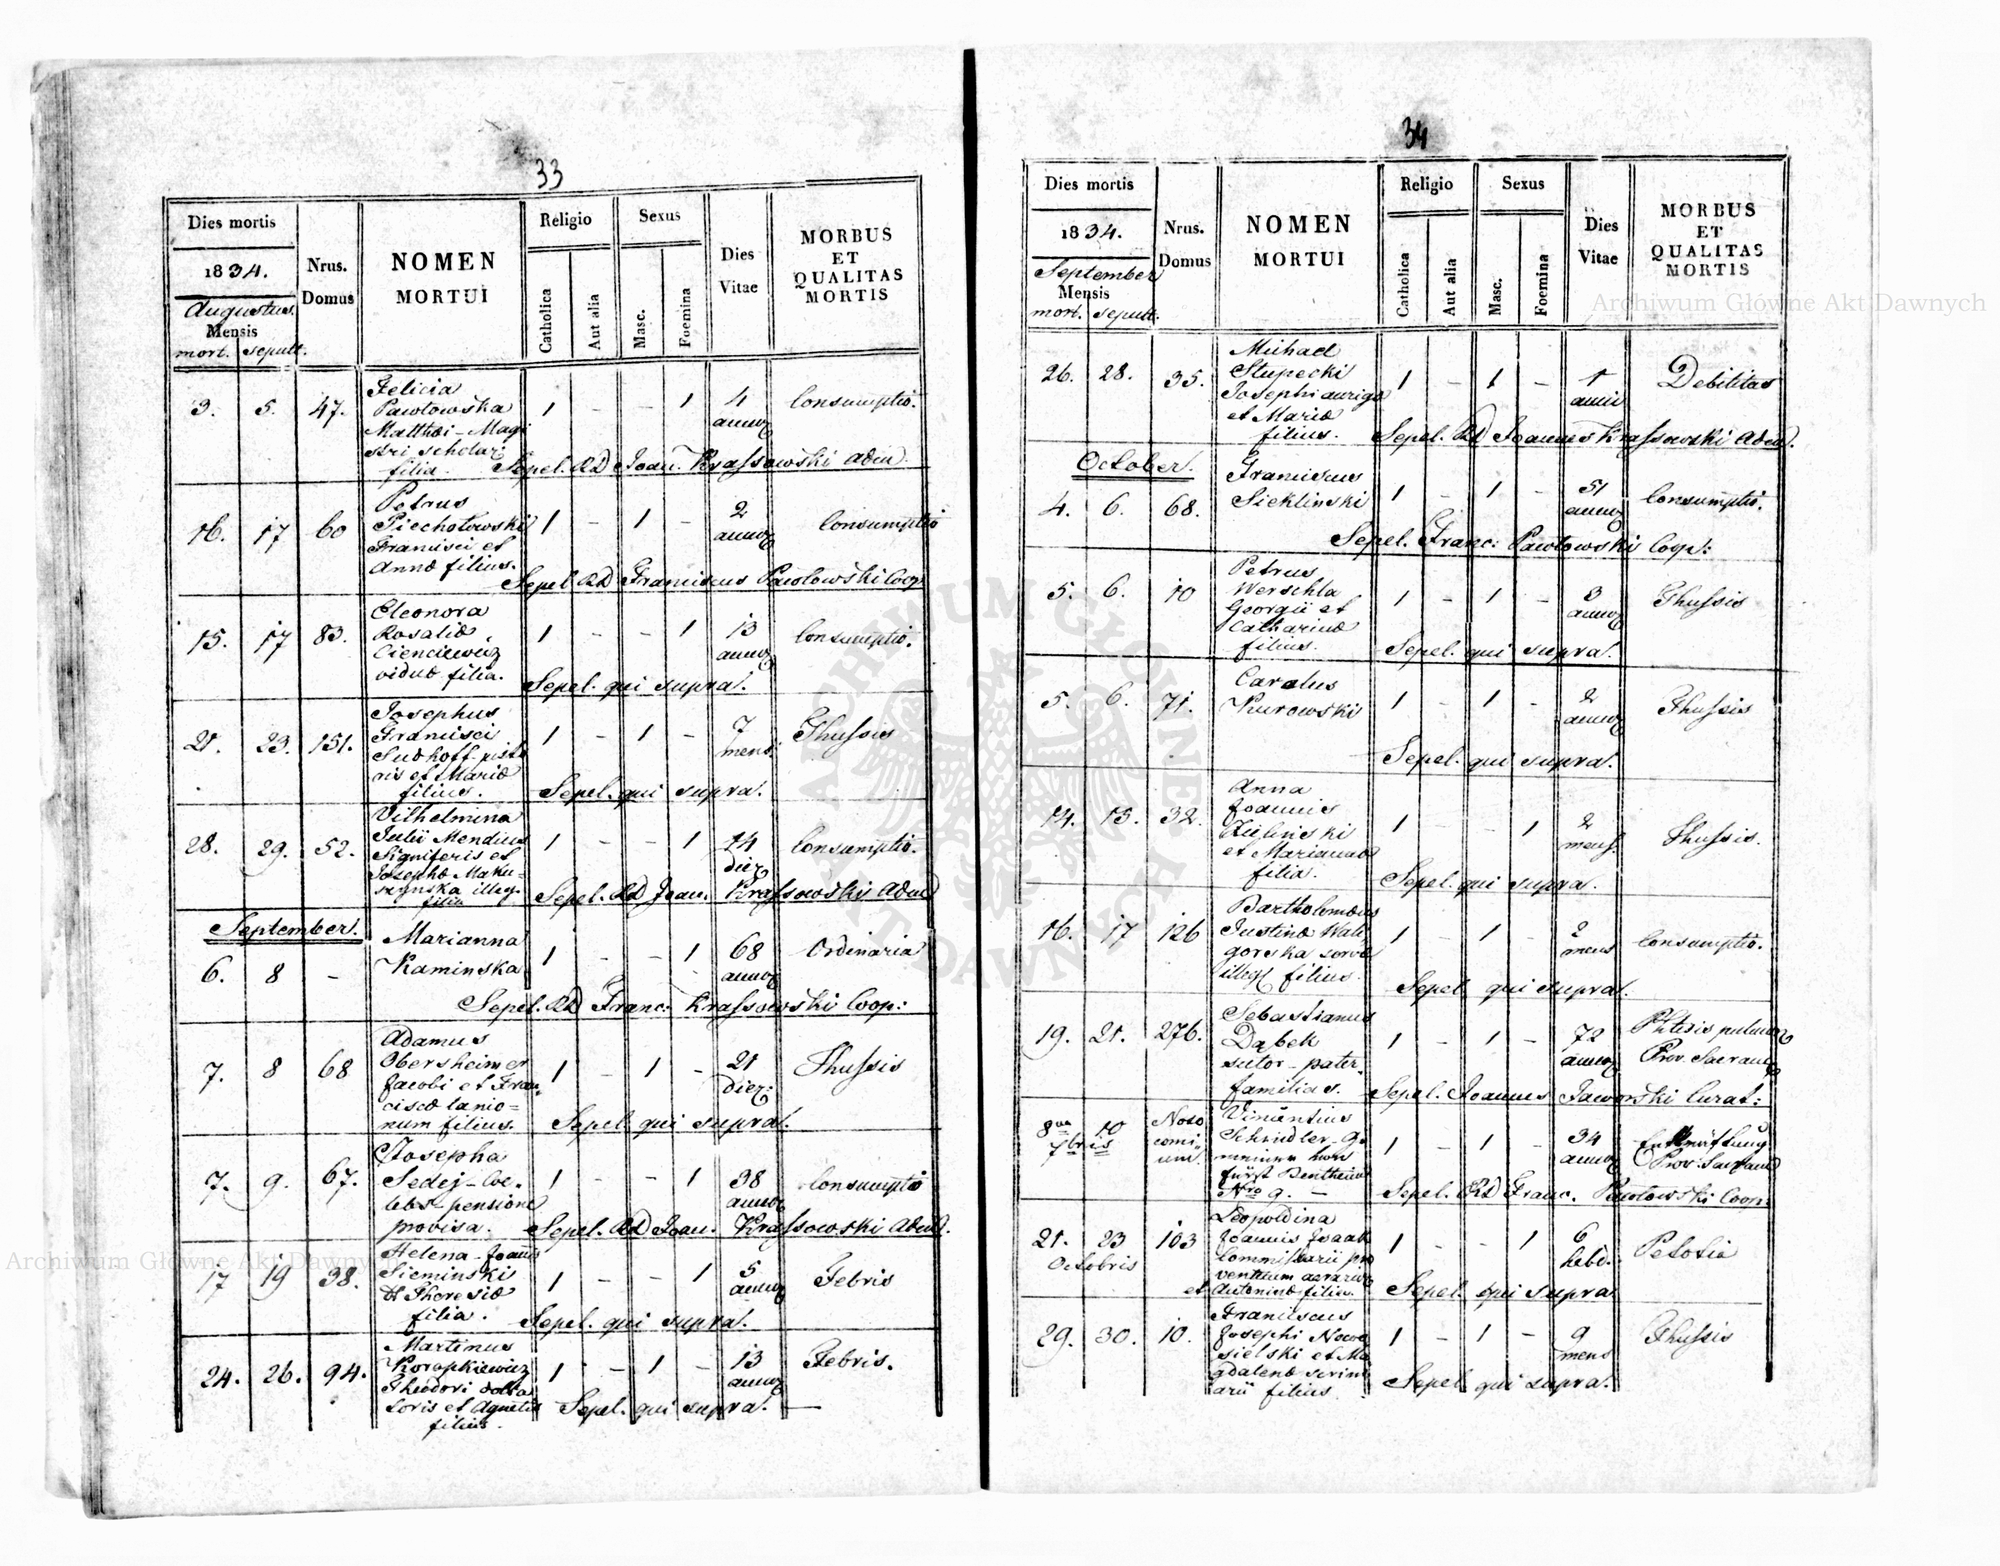 33
Dies mortis
1834.
Augustus.
Mensis
mort. sepult.
Nrus.
Domus
NOMEN
MORTUI
Religio
Catholica
Aut alia
Sexus
Masc.
Foemina
Dies
Vitae
MORBUS
ET
QUALITAS
MORTIS
3. 5. 47. 1 - - 1 4 Consumptio.
Felicia
Pawłowska
Matthæi - Magi
stri scholar:
filia.
annoɀ
Sepel. RD Joan. Krassowski Adm.
16. 17 60 1 - 1 - 2 Consumptio
Petrus
Piechotowski
Francisci et
Annæ filius.
Sepel. RD Franciscus Pawłowski Coop
15. 17 83. 1 - - 1 13 Consumptio.
Eleonora
Rosaliæ
viduæ filia.
Sepel. qui supra.
21. 23. 151. 1 - 1 - 7 Thussis
Josephus
Francisci
Sudhoff pisto
ris et Mariæ
filius.
mens:
Sepel. qui supra.
28. 29. 52. 1 - - 1 14 Consumptio.
Vilhelmina
Julii Mendius
Signiferis et
Josephæ Maku=
szynska illeg.
filia
Sepel. RD Joan. Krassowski Adm
September.
6. 8 - 1 - - 1 68 Ordinaria
Marianna
Kaminska
Sepel. RD Franc: Krassowski Coop:
7. 8 68 1 - 1 - 21 Thussis
Adamus
Obersheimer
Jacobi et Fran
ciscæ lanio=
num filius.
Sepel. qui supra.
7. 9. 67. 1 - - 1 38 Consumptio
Josepha
Sedej - Cœ-
lebs - pensione
provisa.
Sepel. RD Joan. Krassowski Adm.
17 19 38. 1 - - 1 5 Febris
Helena - Joañis
Sieminski
et Theresiæ
filia.
Sepel. qui supra.
24. 26. 94. 1 - 1 - 13 Febris.
Martinus
Korapkiewicz
Theodori
et Agnetis
filius.
Sepel. qui supra.
34
Dies mortis
1834.
September
Mensis
mort. sepult.
Nrus.
Domus
NOMEN
MORTUI
Religio
Catholica
Aut alia
Sexus
Masc.
Foemina
Dies
Vitae
MORBUS
ET
QUALITAS
MORTIS
26. 28. 35. 1 - 1 - 1 Debilitas
Michael
Stupecki
Josephi aurigæ
et Mariæ
filius.
anni
Sepel. RD Joannes Krassowski Adm.
October.
4. 6. 68. 1 - 1 - 51 Consumptio.
Franciscus
Sieklinski
Sepel. Franc: Pawłowski Coop:
5. 6. 10 1 - 1 - 3 Thussis
Petrus
Werschla
Georgii et
Catharinæ
filius.
Sepel. qui supra.
5. 6. 71. 1 - 1 - 2 Thussis
Carolus
Kurowski
Sepel. qui supra.
14. 15. 32. 1 - - 1 2 Thussis.
Anna
Joannis
Zielinski
et Mariannæ
filia.
mens.
Sepel. qui supra.
16. 17 126 1 - 1 - 2 Consumptio.
Bartholomæus
Justinæ Wali
gorska
illeg filius.
mens
Sepel. qui supra.
19. 21. 276. 1 - 1 - 72 Phtisis
Sebastianus
Dąbek
sutor - pater
familias.
Sepel. Joannes Jaworski Curat:
8va 10
7bris
Noso
comi
um.
1 - 1 - 34 Entkräftung
Vincentius
Schindler
fürst Bentheim
Nro 9. -
Sepel. RD Franc. Pawłowski Coop:
21. 23 103 1 - - 1 6
Octobris
Leopoldina
Joannis Jsaak
Commissarii pro
ventuum
et Antoninæ filia.
hebd.
Sepel. qui supra
29. 30. 10. 1 - 1 - 9 Thussis
Franciscus
Josephi Nowo
sielski et Ma
gdalenæ
filius.
mens
Sepel. qui supra.
Archiwum Główne Akt Dawnych
Archiwum Główne Akt Dawnych
ARCHIWUM GŁÓWNE AKT DAWNYCH